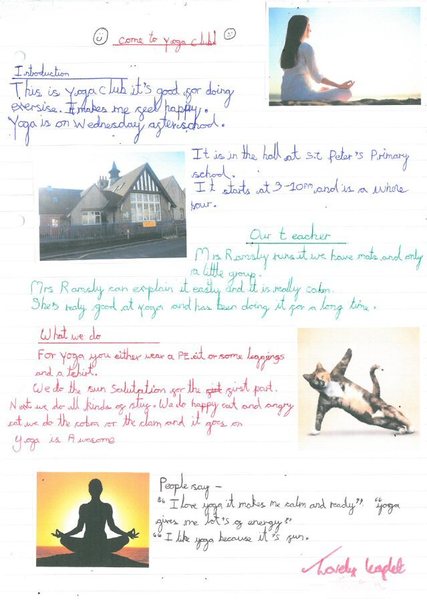 come to yoga club!
Introduction
This is yoga club it's good for doing
exersise. It makes me feel happy.
Yoga is on Wednesday afterschool.
It is in the hall at St Peter's Primary
school.
It starts at 3-10pm, and is a whole
hour.
Our teacher
Mrs Ramsdy runs it we have mats and only
a little group.
Mrs Ramsdy can explain it easily and it is really calm.
She's realy good at yoga and has been doing it for a long time.
What we do
For yoga you either wear a PE kit or some leggings
and a t-shirt.
We do the sun Salutation for the first part.
Next we do all kinds of stuff. We do happy cat and angry
cat we do the cobra or the clam and it goes on
Yoga is Awesome
People say -
"I love yoga it makes me calm and ready". "yoga
gives me lot's of energy"
"I like yoga because it's fun.
Lovely leaflet